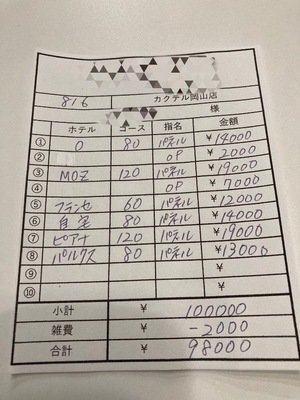 816 カクテル岡山店
様
ホテル コース 指名 金額
① O 80 パネル ¥14000
② OP ¥2000
③ MOZ 120 パネル ¥19000
④ OP ¥7000
⑤ フランセ 60 パネル ¥12000
⑥ 自宅 80 パネル ¥14000
⑦ ピアナ 120 パネル ¥19000
⑧ パルクス 80 パネル ¥13000
⑨ ¥
⑩ ¥
小計 ¥ 100000
雑費 ¥ -2000
合計 ¥ 98000